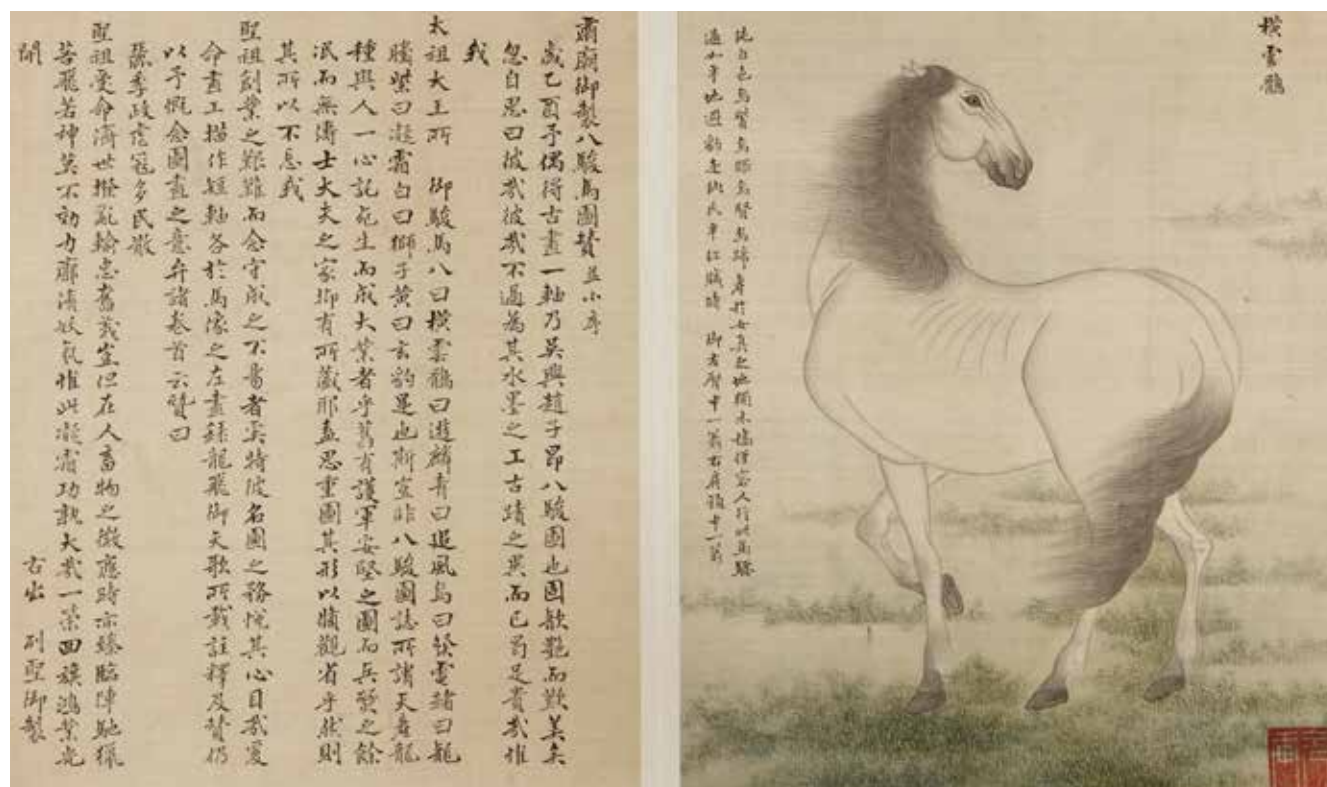 橫雲鶻
純白色烏鬐烏
肅廟御製八駿馬圖贊並小序
歲乙酉予偶得古畫一軸乃吳興趙子昂八駿圖也圖歆艶而歎美矣
忽自思曰彼哉彼哉不過為其水墨之工古蹟之異而已曷足貴哉惟
我
太祖大王所 御駿馬八曰橫雲鶻曰遊麟青曰追風烏曰發電赭曰龍
騰紫曰凝霜白曰獅子黃曰玄豹是也斯豈非八駿圖誌所謂天產龍
種與人一心託死生而成大業者乎舊有護軍安堅之圖而兵燹之餘
泯而無傳士大夫之家抑有所藏耶盍思重圖其形以牖觀省乎然則
其所以不忘我
聖祖創業之艱難而念守成之不易者奚特彼名圖之務悅其心目哉爰
命畫工描作短軸各於馬像之左畫錄龍飛御天歌所載註釋及贊仍
以予慨念圖畫之意弁諸卷首云贊曰
麗季政虐寇多民散
聖祖受命濟世撥亂輸忠奮義豈但在人畜物之微應時亦臻臨陣馳獵
若飛若神莫不効力廓清妖氛惟此凝霜功孰大哉一策回旗鴻業光
開 右出 列聖御製